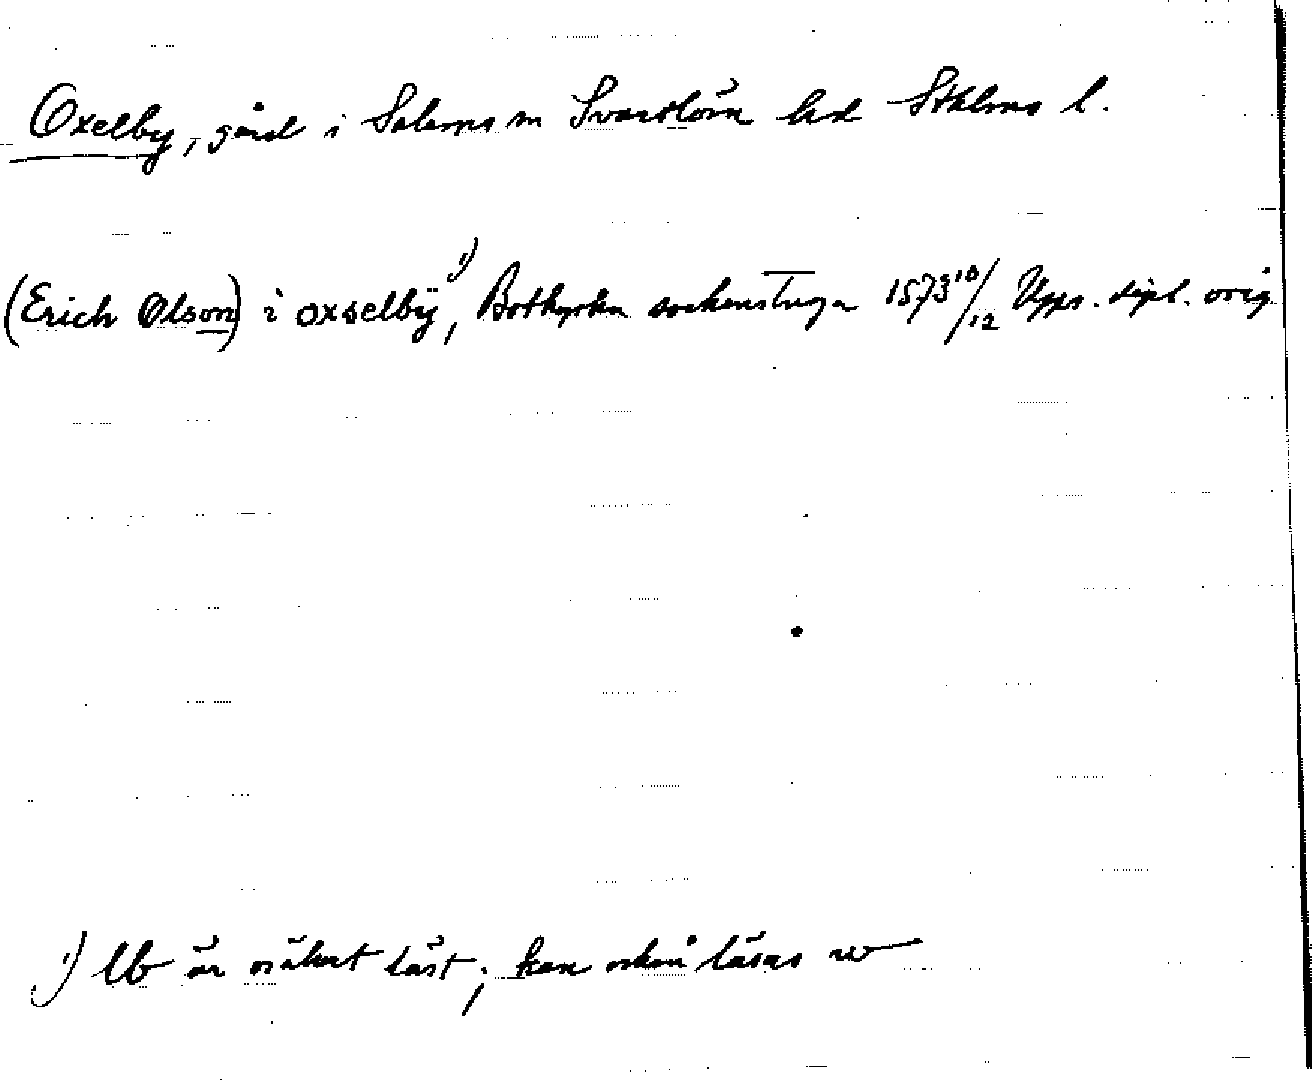 Oxelby, gård i Salems sn Svartlösa hd Sthlms l.
(Erich Olson) i oxselbÿ ¹), Botkyrka sockenstuga 1573 10/12 Upps. dipl. orig
¹) lb är osäkert läst; kan också läsas w